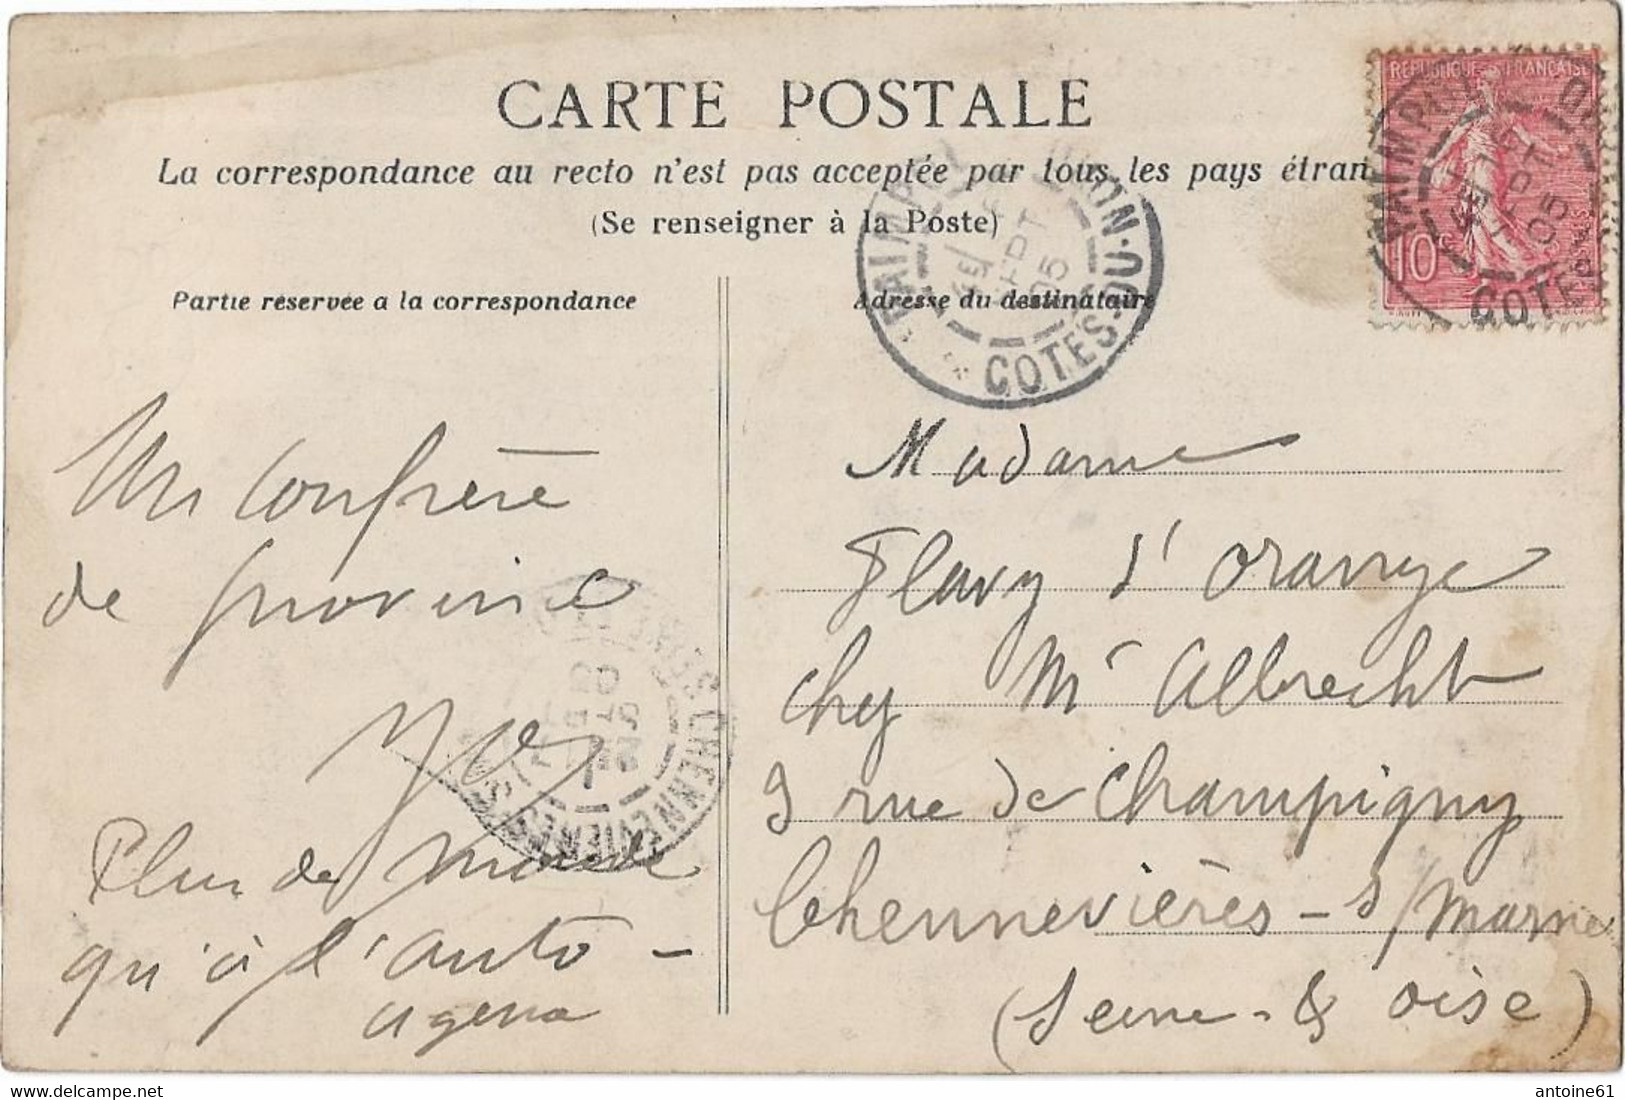 CARTE POSTALE
La correspondance au recto n'est pas acceptée par tous les pays étran
(Se renseigner à la Poste)
REPUBLIQUE FRANÇAISE
10
POSTES
PAIMPOL
COTES-DU-NORD
SEPT
05
PAIMPOL
COTES-DU-NORD
SEPT
05
Partie réservée a la correspondance
Adresse du destinataire
Un Confrère
de province
CHENNEVIERES
SEPT
05
Plus de monde
qu'à l'auto-
Madame
Flavy d'Orange
chez Mr Albrecht
9 rue de Champigny
Chennevières - s/Marne
(Seine - & Oise)
antoine61